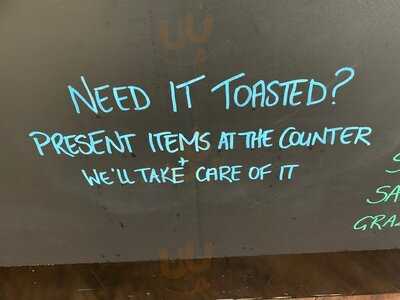 NEED IT TOASTED?
PRESENT ITEMS AT THE COUNTER
+
WE'LL TAKE CARE OF IT